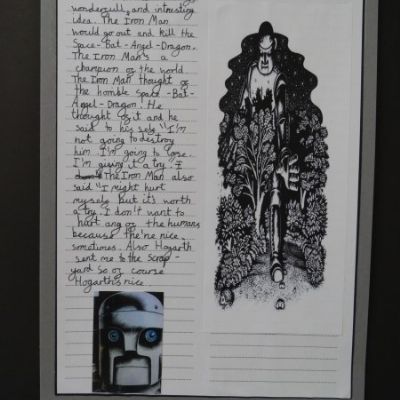 wonderfull and intresting
idea. The Iron Man
would go out and kill the
Space-Bat-Angel-Dragon.
The Iron Man's a
champion of the world.
The Iron Man thought of
the horrible space-Bat-
Angel-Dragon. He
thought of it and he
said to his self "I'm
not going to destroy
him I'm going to lose.
I'm giving it a try. I
The Iron Man also
said "I might hurt
myself but it's worth
a try. I don't want to
hurt any of the humans
because the're nice
sometimes. Also Hogarth
sent me to the scrap-
yard so of course
Hogarth's nice